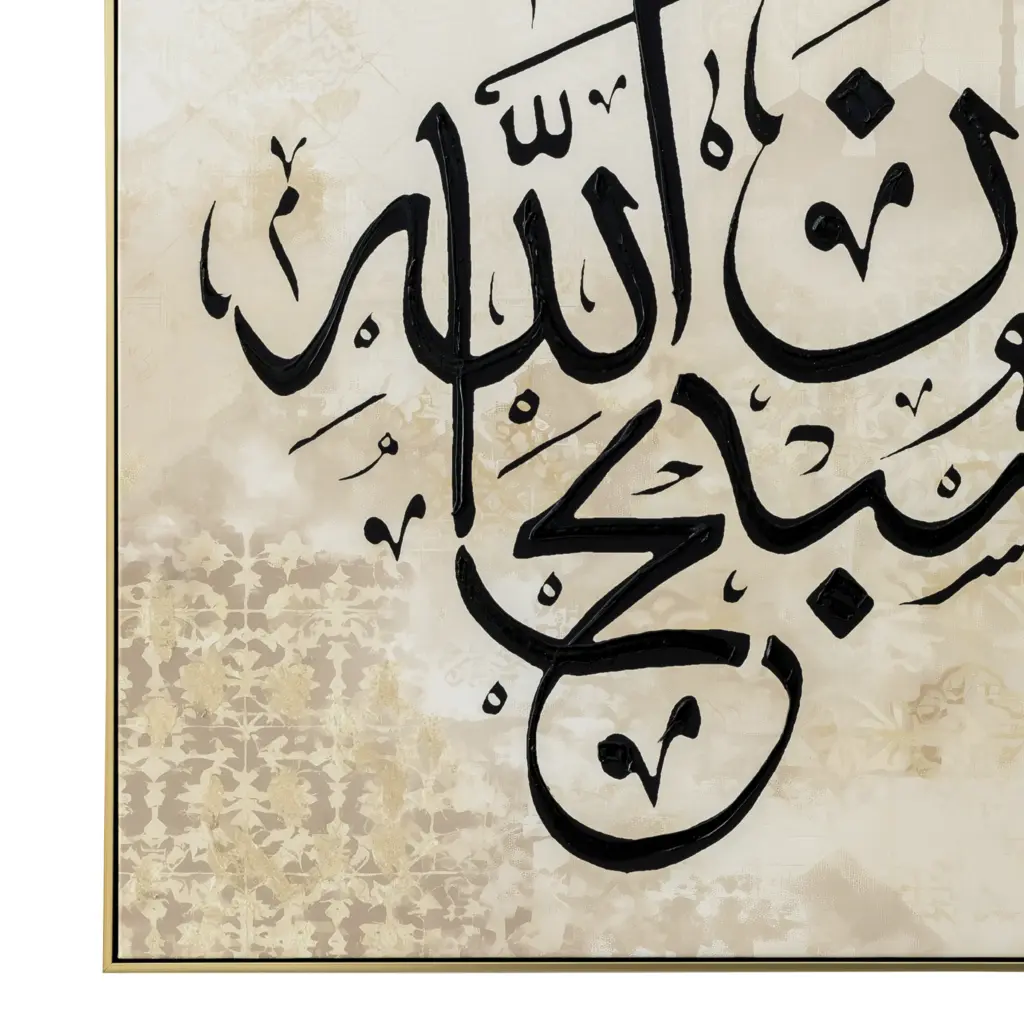 الله
سبحان